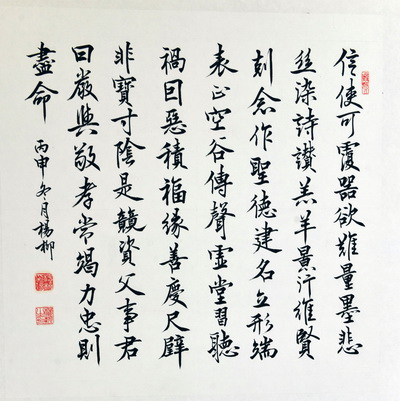 信使可覆器欲難量墨悲
絲染詩讚羔羊景行維賢
刻念作聖德建名立形端
表正空谷傳聲虛堂習聽
禍因惡積福緣善慶尺璧
非寶寸陰是競資父事君
曰嚴與敬孝當竭力忠則
盡命
丙申冬月楊柳